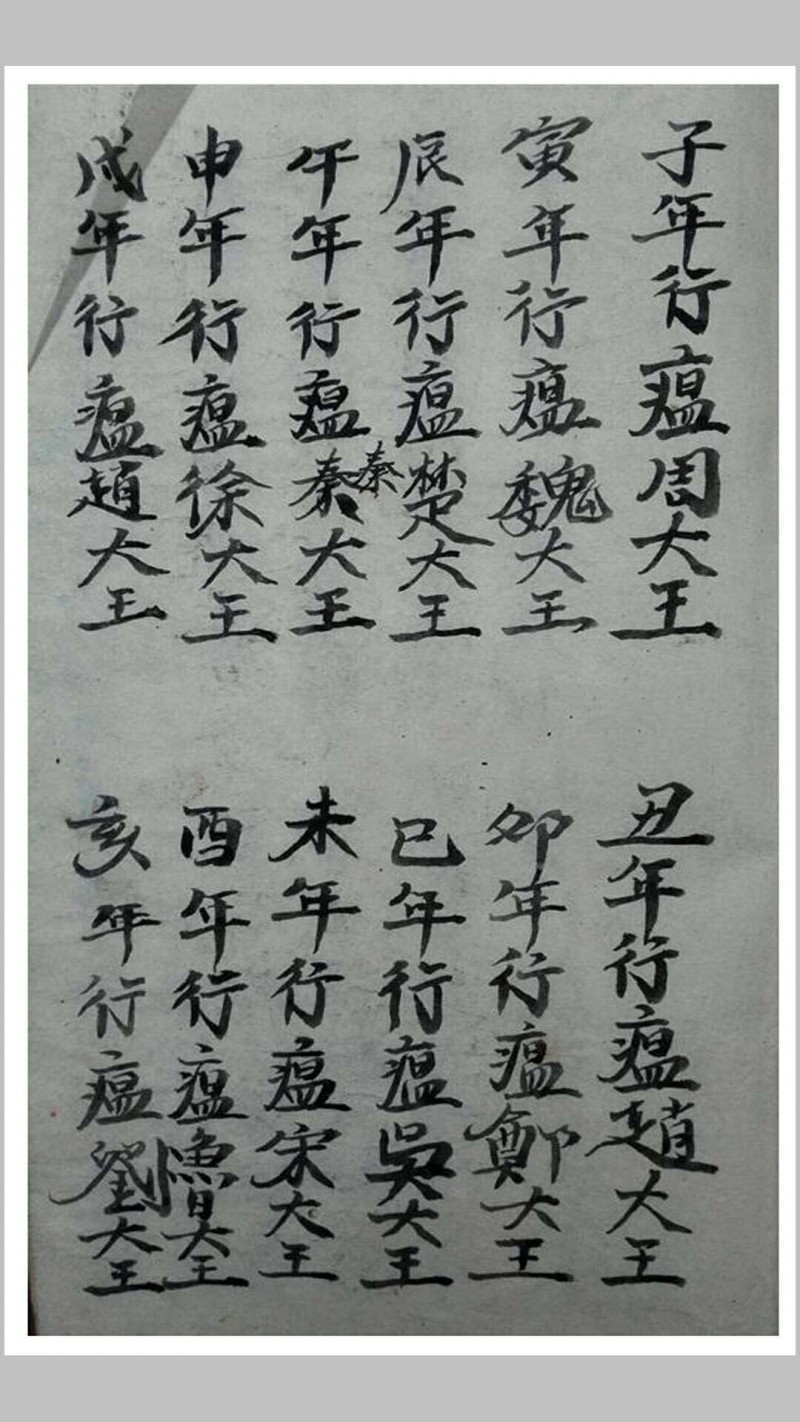 子年行瘟周大王
丑年行瘟趙大王
寅年行瘟魏大王
卯年行瘟鄭大王
辰年行瘟楚大王
巳年行瘟吳大王
秦
午年行瘟秦大王
未年行瘟宋大王
申年行瘟徐大王
酉年行瘟魯大王
戌年行瘟趙大王
亥年行瘟劉大王